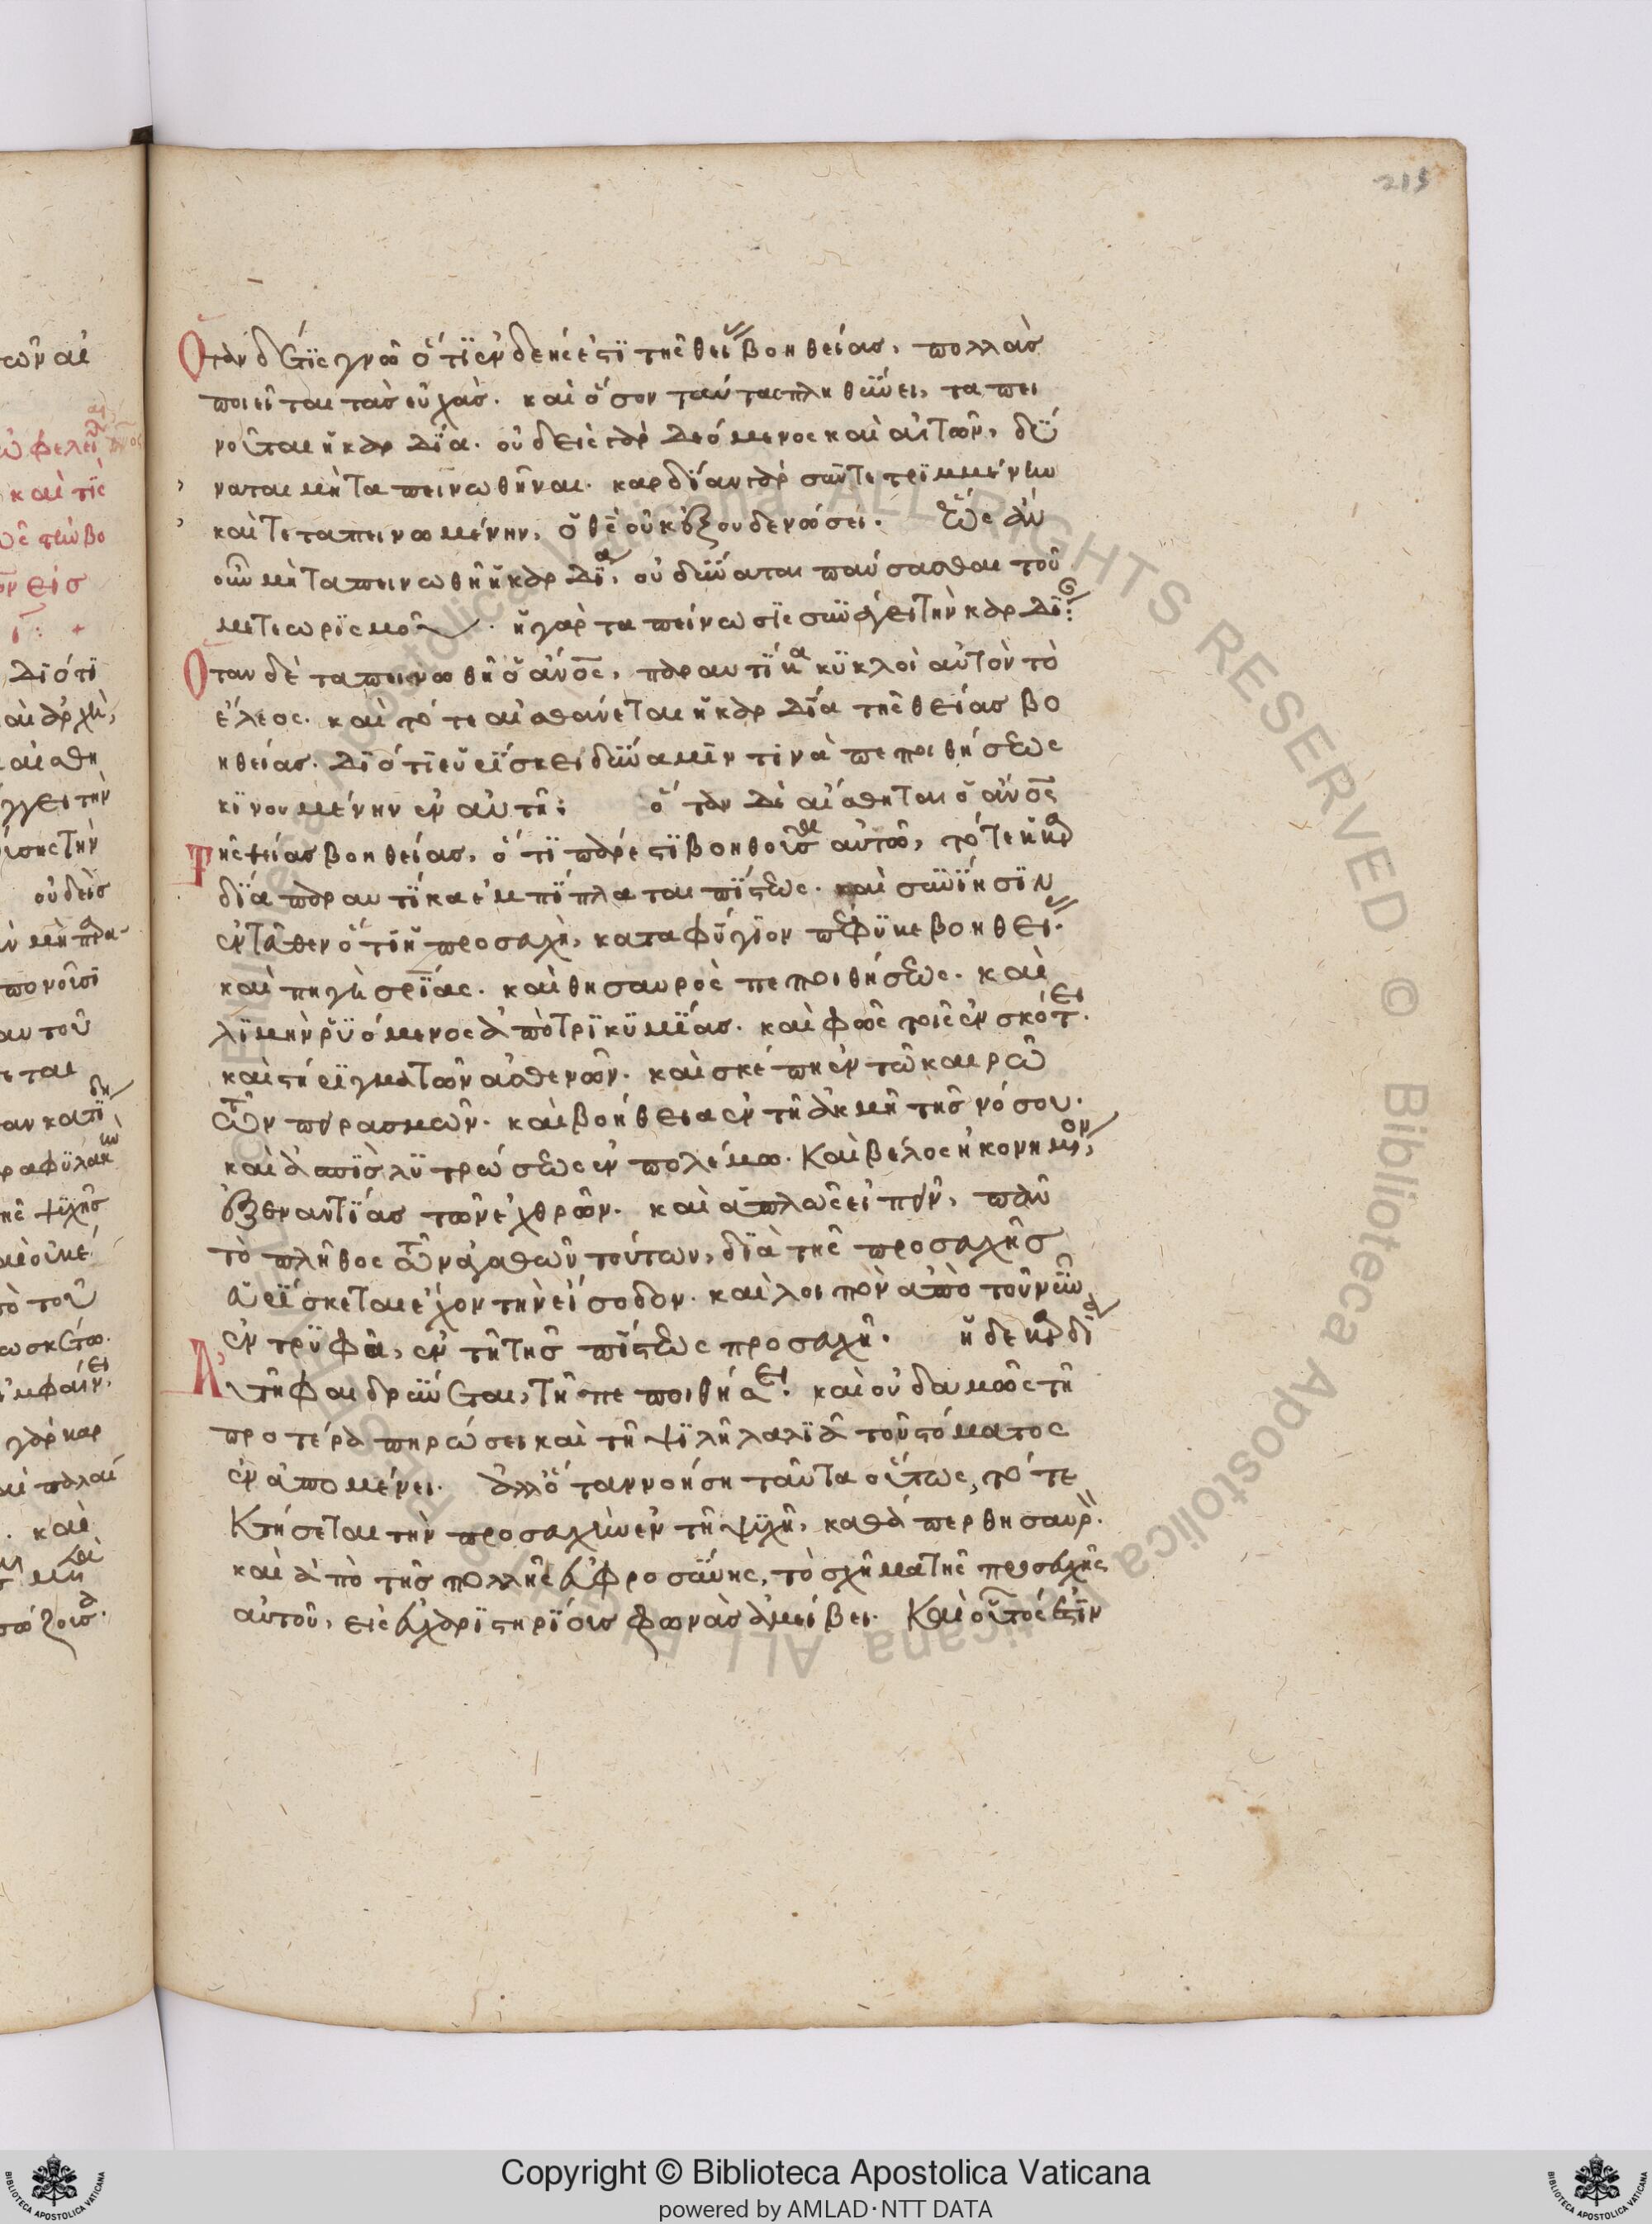 215
Ὅταν δέ τις γνῶ ὅτι ἐνδεής ἐστι τῆς θείας βοηθείας, πολλὰς
ποιεῖται τὰς εὐχάς. καὶ ὅσον ταύτας πληθύνει, ταπει
νοῦται ἡ καρδία. οὐδεὶς γὰρ δεόμενος καὶ αἰτῶν, δύ
ναται μὴ ταπεινωθῆναι. καρδίαν γὰρ συντετριμμένην
καὶ τεταπεινωμένην, ὁ θς οὐκ ἐξουδενώσει. Ἕως ἂν
οὖν μὴ ταπεινωθῇ ἡ καρδία, οὐ δύναται παύσασθαι τοῦ
μετεωρισμοῦ. ἡ γὰρ ταπείνωσις συνάγει τὴν καρδίαν:
Ὅταν δὲ ταπεινωθῇ ὁ ἄνος, παραυτίκα κυκλοῖ αὐτὸν τὸ
ἔλεος. καὶ τότε αἰσθάνεται ἡ καρδία τῆς θείας βο
ηθείας. Διότι εὑρίσκει δύναμίν τινα πεποιθήσεως
κινουμένην ἐν αὐτῇ: ὅταν δὲ αἴσθηται ὁ ἄνος
τῆς θείας βοηθείας, ὅτι πάρεστι βοηθοῦσα αὐτῷ, τότε ἡ καρ
δία παραυτίκα ἐμπίπλαται πίστεως. καὶ συνίησιν
ἐντεῦθεν ὅτι ἡ προσευχὴ, καταφύγιον πέφυκε βοηθείας.
καὶ πηγὴ σρίας. καὶ θησαυρὸς πεποιθήσεως. καὶ
λιμὴν ῥυόμενος ἀπὸ τρικυμίας. καὶ φῶς τοῖς ἐν σκότει.
καὶ στήριγμα τῶν ἀσθενῶν. καὶ σκέπη ἐν τῷ καιρῷ
τῶν πειρασμῶν. καὶ βοήθεια ἐν τῇ ἀκμῇ τῆς νόσου.
καὶ ἀσπὶς λυτρώσεως ἐν πολέμῳ. Καὶ βέλος ἠκονημένον,
ἐξεναντίας τῶν ἐχθρῶν. καὶ ἁπλῶς εἰπεῖν, πᾶν
τὸ πλῆθος τῶν ἀγαθῶν τούτων, διὰ τῆς προσευχῆς
εὑρίσκεται ἔχον τὴν εἴσοδον. καὶ λοιπὸν ἀπὸ τοῦ νῦν
ἐν τρυφᾷ, ἐν τῇ τῆς πίστεως προσευχῇ. ἡ δὲ καρδία
αὐτῇ φαιδρύνεται, τῇ πεποιθήσει. καὶ οὐδαμῶς τῇ
προτέρᾳ πηρώσει καὶ τῇ ψιλῇ λαλιᾷ τοῦ στόματος
ἐναπομένει. ἀλλ' ὅταν νοήσῃ ταῦτα οὕτως, τότε
Κτήσεται τὴν προσευχὴν ἐν τῇ ψυχῇ, καθάπερ θησαυρόν.
καὶ ἀπὸ τῆς πολλῆς εὐφροσύνης, τὸ σχῆμα τῆς προσευχῆς
αὐτοῦ, εἰς εὐχαριστηρίους φωνὰς ἀμείβει. Καὶ οὗτός ἐστιν
Copyright © Biblioteca Apostolica Vaticana
powered by AMLAD·NTT DATA